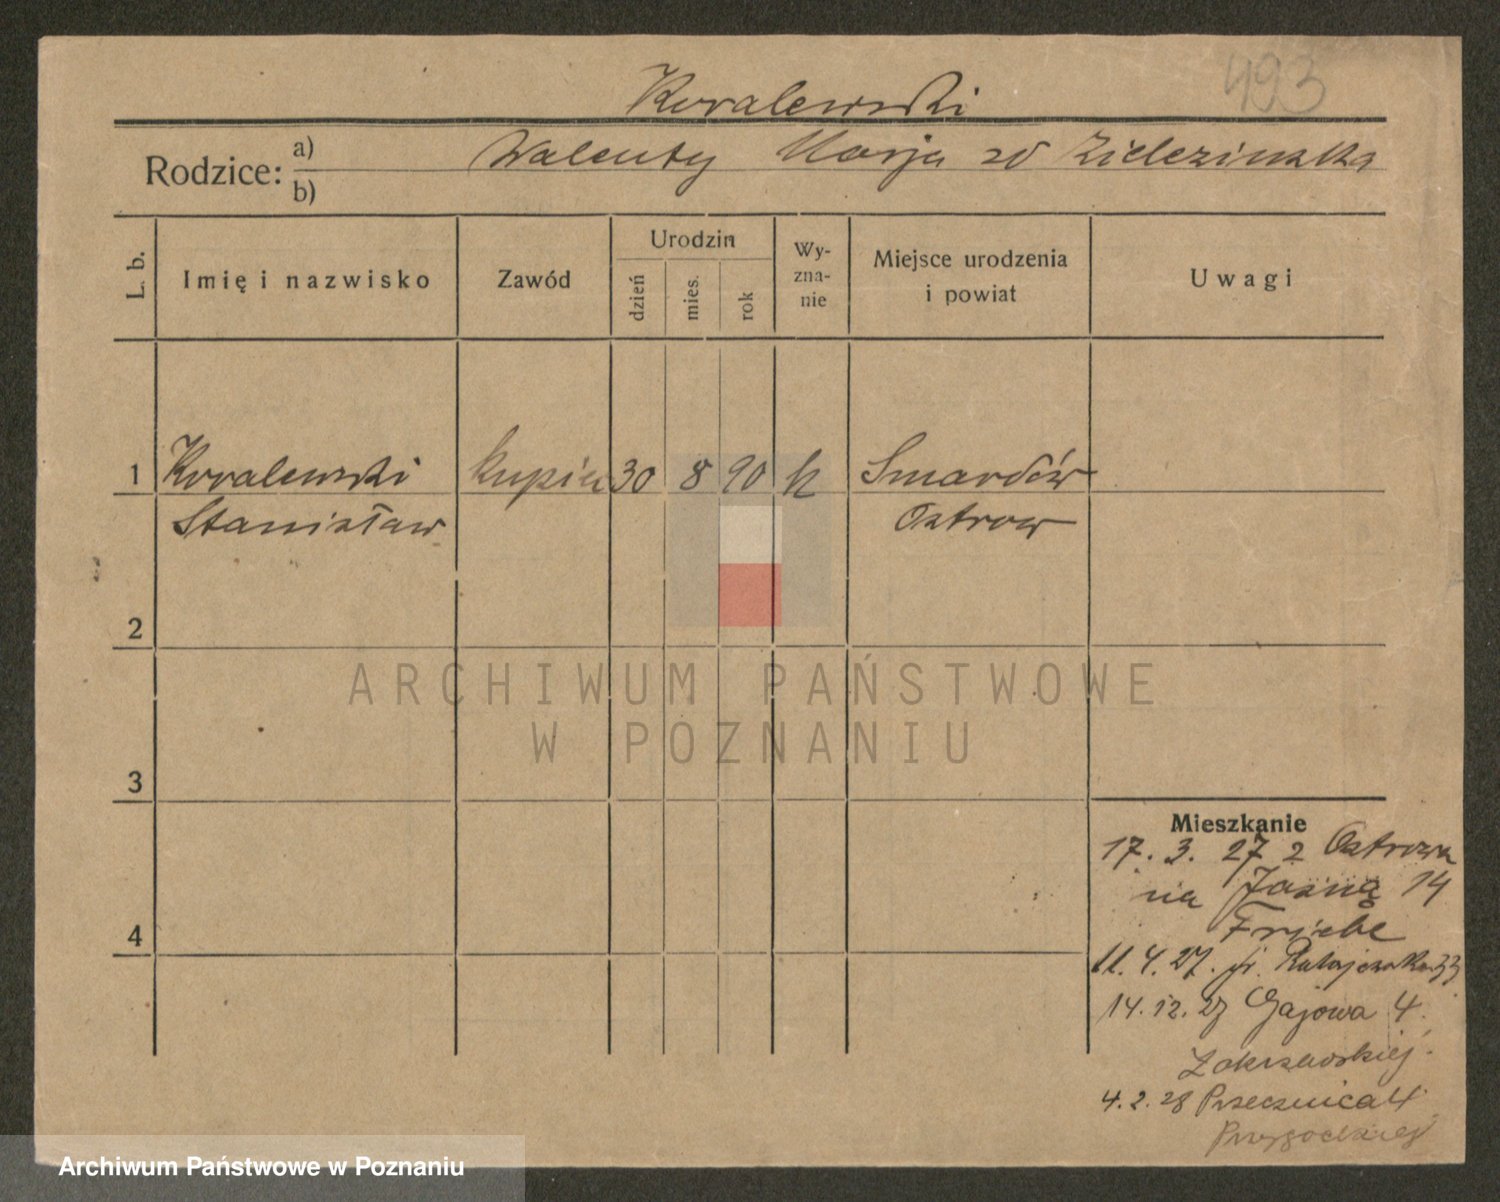 493
Koralewski
Rodzice: a) Walenty Marja zd Zielezinska
b)
L. b. Imię i nazwisko Zawód Urodzin dzień mies. rok Wy-zna-nie Miejsce urodzenia i powiat Uwagi
1 Koralewski kupiec 30 8 90 k Smardów
Stanisław Ostrow
2
3
4
Mieszkanie
17. 3. 27 z Ostrowa
na Jasną 14
Friebe
11. 4. 27. fr. Ratajczaka 33
14. 12. 27 Gajowa 4.
Zakrzewskiej.
4. 2. 28 Przecznica 4
ARCHIWUM PAŃSTWOWE
W POZNANIU
Archiwum Państwowe w Poznaniu